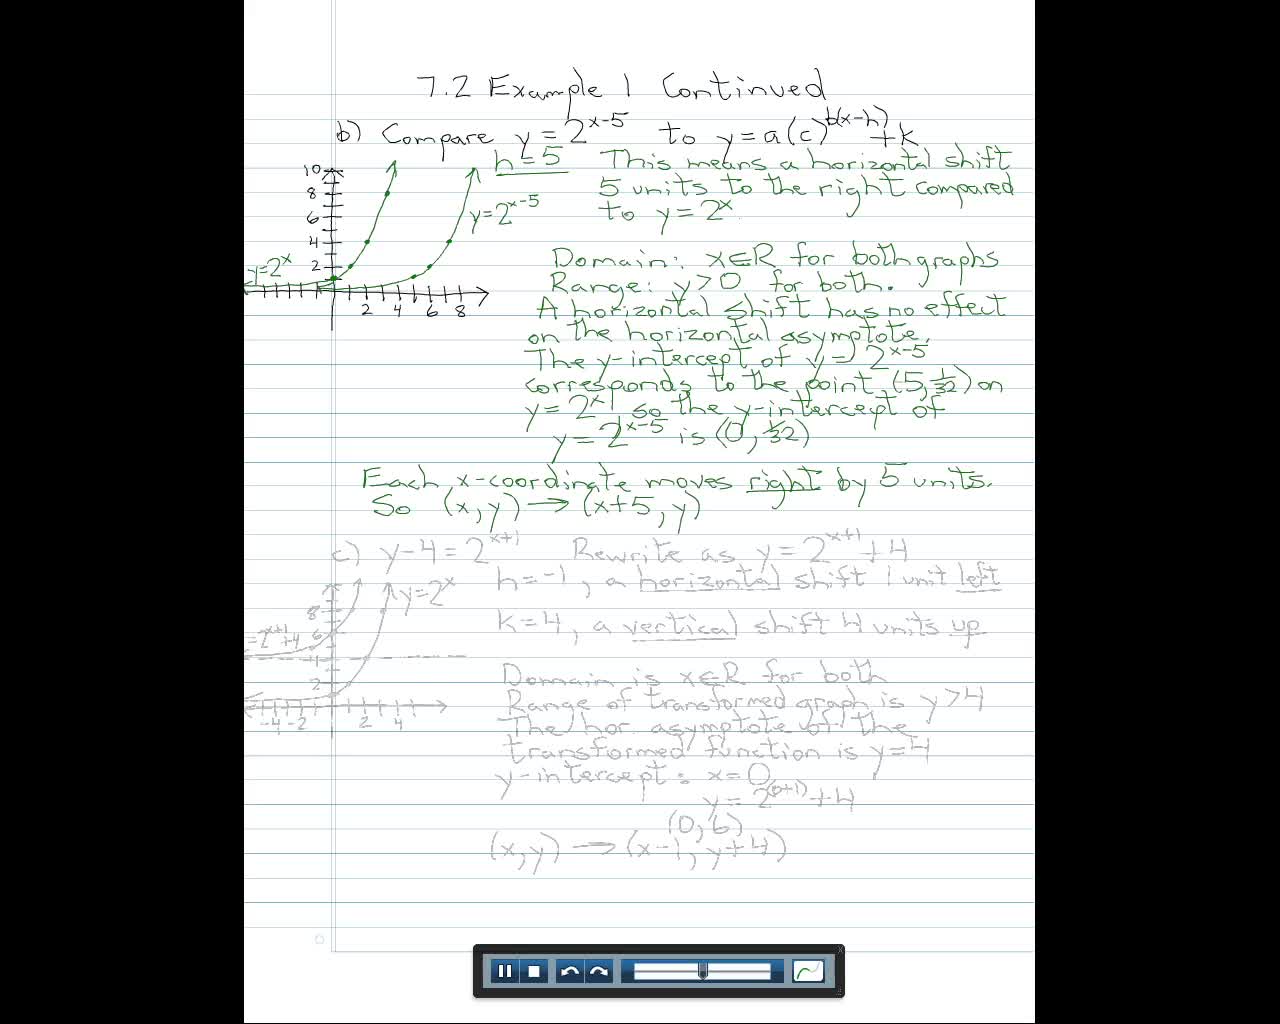 7.2 Example 1 Continued
b) Compare y = 2^(x-5) to y = a(c)^(b(x-h)) + k
h = 5 This means a horizontal shift
5 units to the right compared
to y = 2^x.
10
8
6
4
2
2 4 6 8
y=2^x
y=2^(x-5)
Domain: x∈R for both graphs
Range: y>0 for both.
A horizontal shift has no effect
on the horizontal asymptote.
The y-intercept of y = 2^(x-5)
corresponds to the point (5, 1/32) on
y = 2^x, so the y-intercept of
y = 2^(x-5) is (0, 1/32)
Each x-coordinate moves right by 5 units.
So (x, y) → (x+5, y)
c) y-4 = 2^(x+1) Rewrite as y = 2^(x+1) + 4
h = -1, a horizontal shift 1 unit left
k = 4, a vertical shift 4 units up
y=2^x
=2^(x+1)+4
8
6
4
2
-4 -2 2 4
Domain is x∈R for both
Range of transformed graph is y>4
The hor. asymptote of the
transformed function is y=4
y-intercept: x=0
y = 2^(0+1) + 4
(0, 6)
(x, y) → (x-1, y+4)